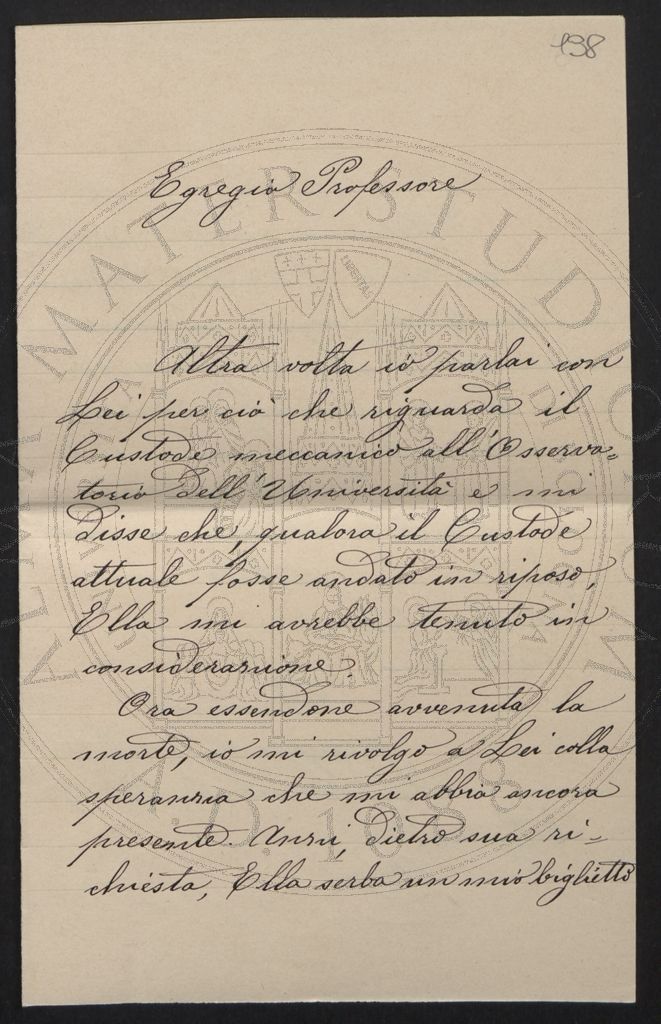 198
Egregio Professore
Altra volta io parlai con
Lei per ciò che riguarda il
Custode meccanico all'Osserva=
torio dell'Università e mi
disse che, qualora il Custode
attuale fosse andato in riposo,
Ella mi avrebbe tenuto in
considerazione.
Ora essendone avvenuta la
morte, io mi rivolgo a Lei colla
speranza che mi abbia ancora
presente. Anzi, dietro sua ri=
chiesta, Ella serba un mio biglietto
ALMA MATER STUDIORUM
LIBERTAS
A.D. 1088